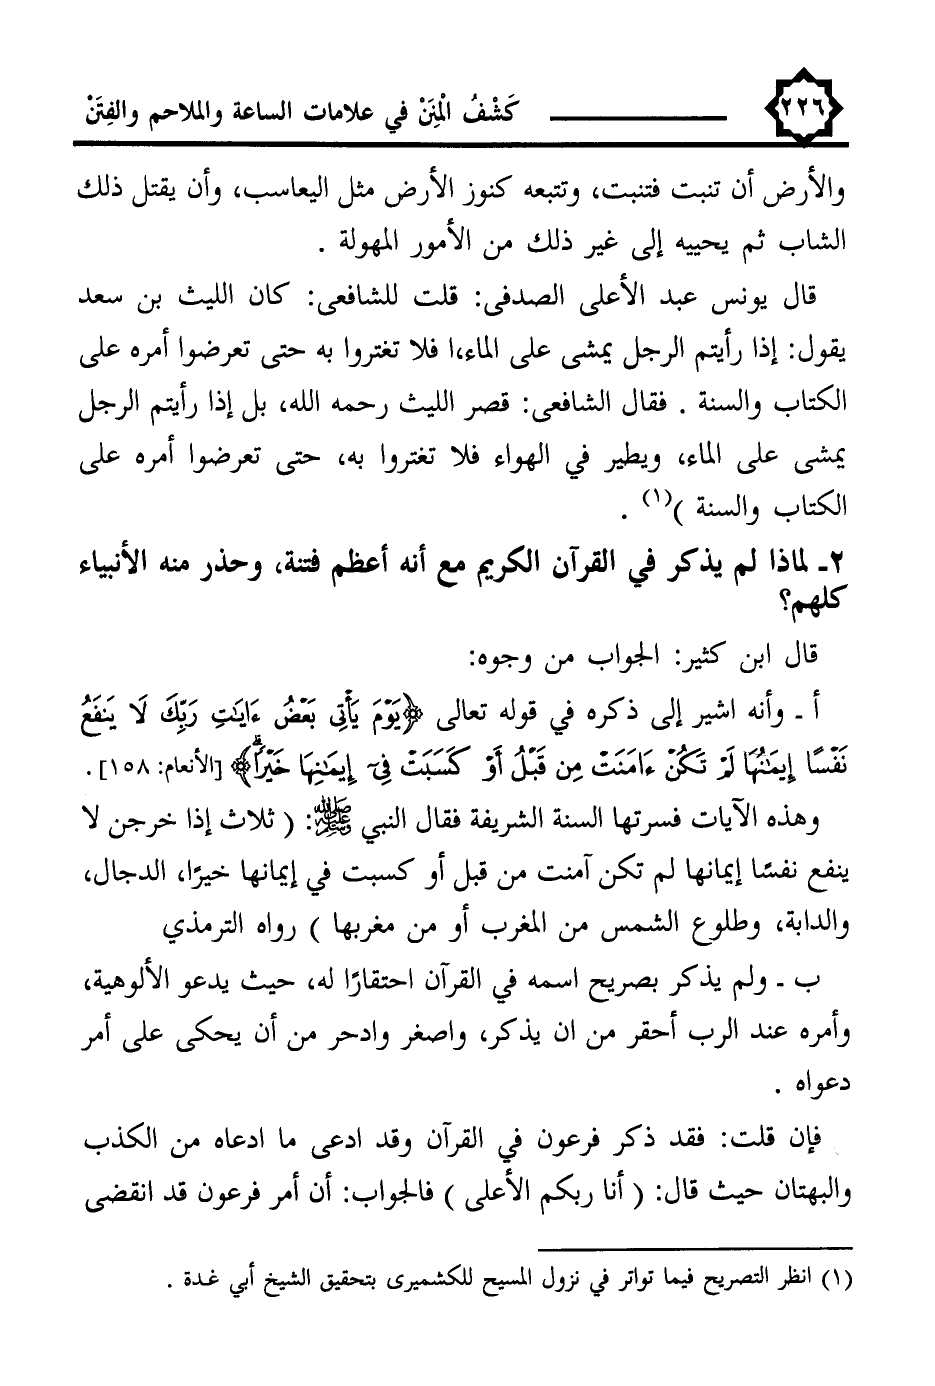 ٢٢٦ كَشْفُ الْمِنَنْ في علامات الساعة والملاحم والفِتَنْ
والأرض أن تنبت فتنبت، وتتبعه كنوز الأرض مثل اليعاسب، وأن يقتل ذلك
الشاب ثم يحييه إلى غير ذلك من الأمور المهولة .
قال يونس عبد الأعلى الصدفى: قلت للشافعى: كان الليث بن سعد
يقول: إذا رأيتم الرجل يمشى على الماء،ا فلا تغتروا به حتى تعرضوا أمره على
الكتاب والسنة . فقال الشافعى: قصر الليث رحمه الله، بل إذا رأيتم الرجل
يمشى على الماء، ويطير في الهواء فلا تغتروا به، حتى تعرضوا أمره على
الكتاب والسنة )(١) .
٢ـ لماذا لم يذكر في القرآن الكريم مع أنه أعظم فتنة، وحذر منه الأنبياء
كلهم؟
قال ابن كثير: الجواب من وجوه:
أ ـ وأنه اشير إلى ذكره في قوله تعالى ﴿يَوْمَ يَأْتِى بَعْضُ ءَايَٰتِ رَبِّكَ لَا يَنفَعُ
نَفْسًا إِيمَٰنُهَا لَمْ تَكُنْ ءَامَنَتْ مِن قَبْلُ أَوْ كَسَبَتْ فِىٓ إِيمَٰنِهَا خَيْرًاۗ﴾ [الأنعام: ١٥٨].
وهذه الآيات فسرتها السنة الشريفة فقال النبي ﷺ: ( ثلاث إذا خرجن لا
ينفع نفسًا إيمانها لم تكن آمنت من قبل أو كسبت في إيمانها خيرًا، الدجال،
والدابة، وطلوع الشمس من المغرب أو من مغربها ) رواه الترمذي
ب ـ ولم يذكر بصريح اسمه في القرآن احتقارًا له، حيث يدعو الألوهية،
وأمره عند الرب أحقر من ان يذكر، واصغر وادحر من أن يحكى على أمر
دعواه .
فإن قلت: فقد ذكر فرعون في القرآن وقد ادعى ما ادعاه من الكذب
والبهتان حيث قال: ( أنا ربكم الأعلى ) فالجواب: أن أمر فرعون قد انقضى
(١) انظر التصريح فيما تواتر في نزول المسيح للكشميرى بتحقيق الشيخ أبي غدة .